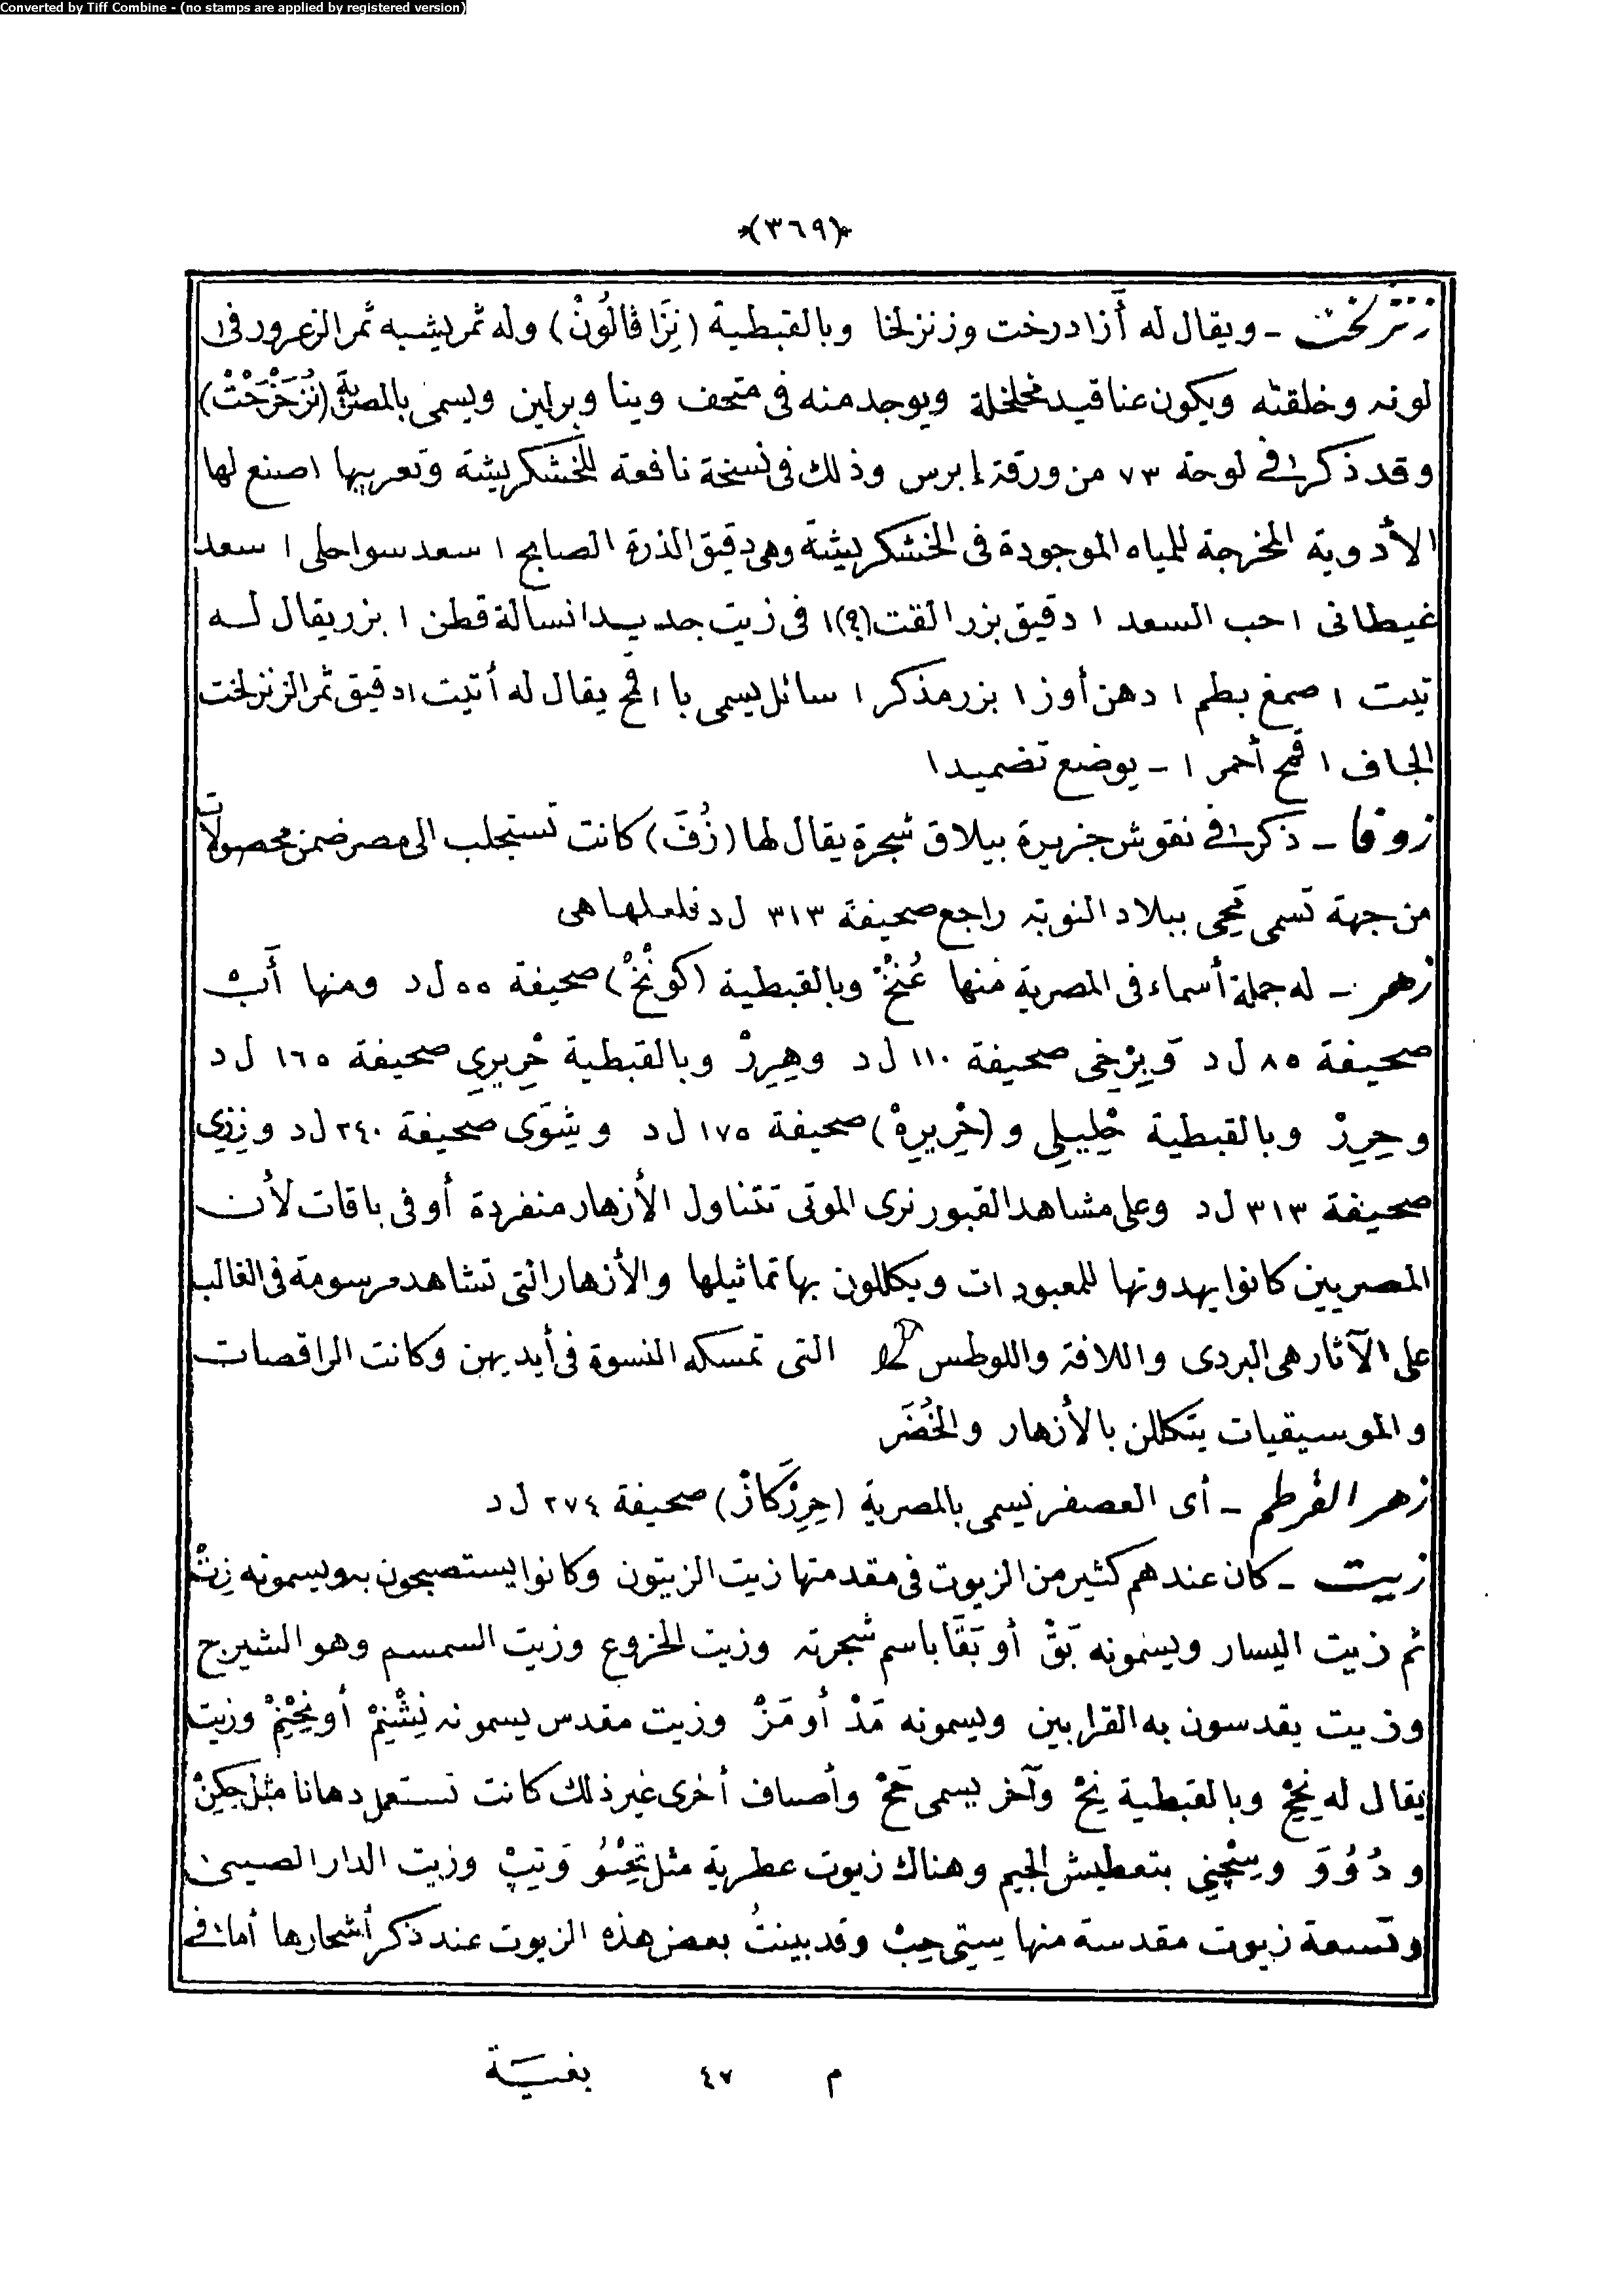 Converted by Tiff Combine - (no stamps are applied by registered version)
﴿٣٦٩﴾
زنزلخت - ويقال له أزادرخت وزنزلخا وبالقبطية (نِزَاڤالُونْ) وله ثمر يشبه ثمر الزعرور فى
لونه وخلقته ويكون عناقيد مخلخلة ويوجد منه فى متحف وينا وبرلين ويسمى بالمصرية
وقد ذكر فى لوحة ٧٣ من ورقة إبرس وذلك فى نسخة نافعة للخشكريشة وتعريبها اصنع لها
الأدوية المخرجة للمياه الموجودة فى الخشكريشة وهى دقيق الذرة الصابح ١ سعد سواحلى ١ سعد
غيطانى ١ حب السعد ١ دقيق بزر القت (؟) ١ فى زيت جديد ١ نسالة قطن ١ بزر يقال له
تيت ١ صمغ بطم ١ دهن أوز ١ بزر مذكر ١ سائل يسمى با ١ قمح يقال له أتيت ١ دقيق ثمر الزنزلخت
الجاف ١ قمح أحمر ١ - يوضع تضميدا
زوفا - ذكر فى نقوش جزيرة بيلاق شجرة يقال لها (زُفَ) كانت تستجلب الى مصر ضمن محصولات
من جهة تسمى ببلاد النوبة راجع صحيفة ٣١٣ ل د فلعلها هى
زهر - له جملة أسماء فى المصرية منها عُنخْ وبالقبطية (كونْخْ) صحيفة ٥٥ ل د ومنها أَبْ
صحيفة ٨٥ ل د وَبِرْخِى صحيفة ١١٠ ل د وهِرِرْ وبالقبطية خْرِيرِي صحيفة ١٦٥ ل د
وحِرِرْ وبالقبطية خْلِيلِى و (خْرِيرِهْ) صحيفة ١٧٥ ل د وشِوَى صحيفة ٢٤٠ ل د وزِزِى
صحيفة ٣١٣ ل د وعلى مشاهد القبور نرى الموتى تتناول الأزهار منفردة أو فى باقات لأن
المصريين كانوا يهدونها للمعبودات ويكللون بها تماثيلها والأزهار التى تشاهد مرسومة فى الغالب
على الآثار هى البردى واللافة واللوطس التى تمسكه النسوة فى أيديهن وكانت الراقصات
والموسيقيات يتكللن بالأزهار والخُضَر
زهر القرطم - أى العصفر يسمى بالمصرية (حِرِرْكَازْ) صحيفة ٢٧٤ ل د
زيت - كان عندهم كثير من الزيوت فى مقدمتها زيت الزيتون وكانوا يستصبحون به ويسمونه زِتْ
ثم زيت اليسار ويسمونه بَقْ أو بَقَا باسم شجرته وزيت الخروع وزيت السمسم وهو الشيرج
وزيت يقدسون به القرابين ويسمونه مَدْ أو مَزْ وزيت مقدس يسمونه نِشْنِمْ أو نِخْنِمْ وزيت
يقال له نِحِحْ وبالقبطية نِحْ وآخر يسمى وأصناف أخرى غير ذلك كانت تستعمل دهانا مثل حِكِنْ
و دُوُوَ و بتعطيش الجيم وهناك زيوت عطرية مثل وَتِپْ وزيت الدار الصينى
وتسعة زيوت مقدسة منها سِتِى حِبْ وقد بينتُ بعض هذه الزيوت عند ذكر أشجارها أما فى
م ٤٧ بغية